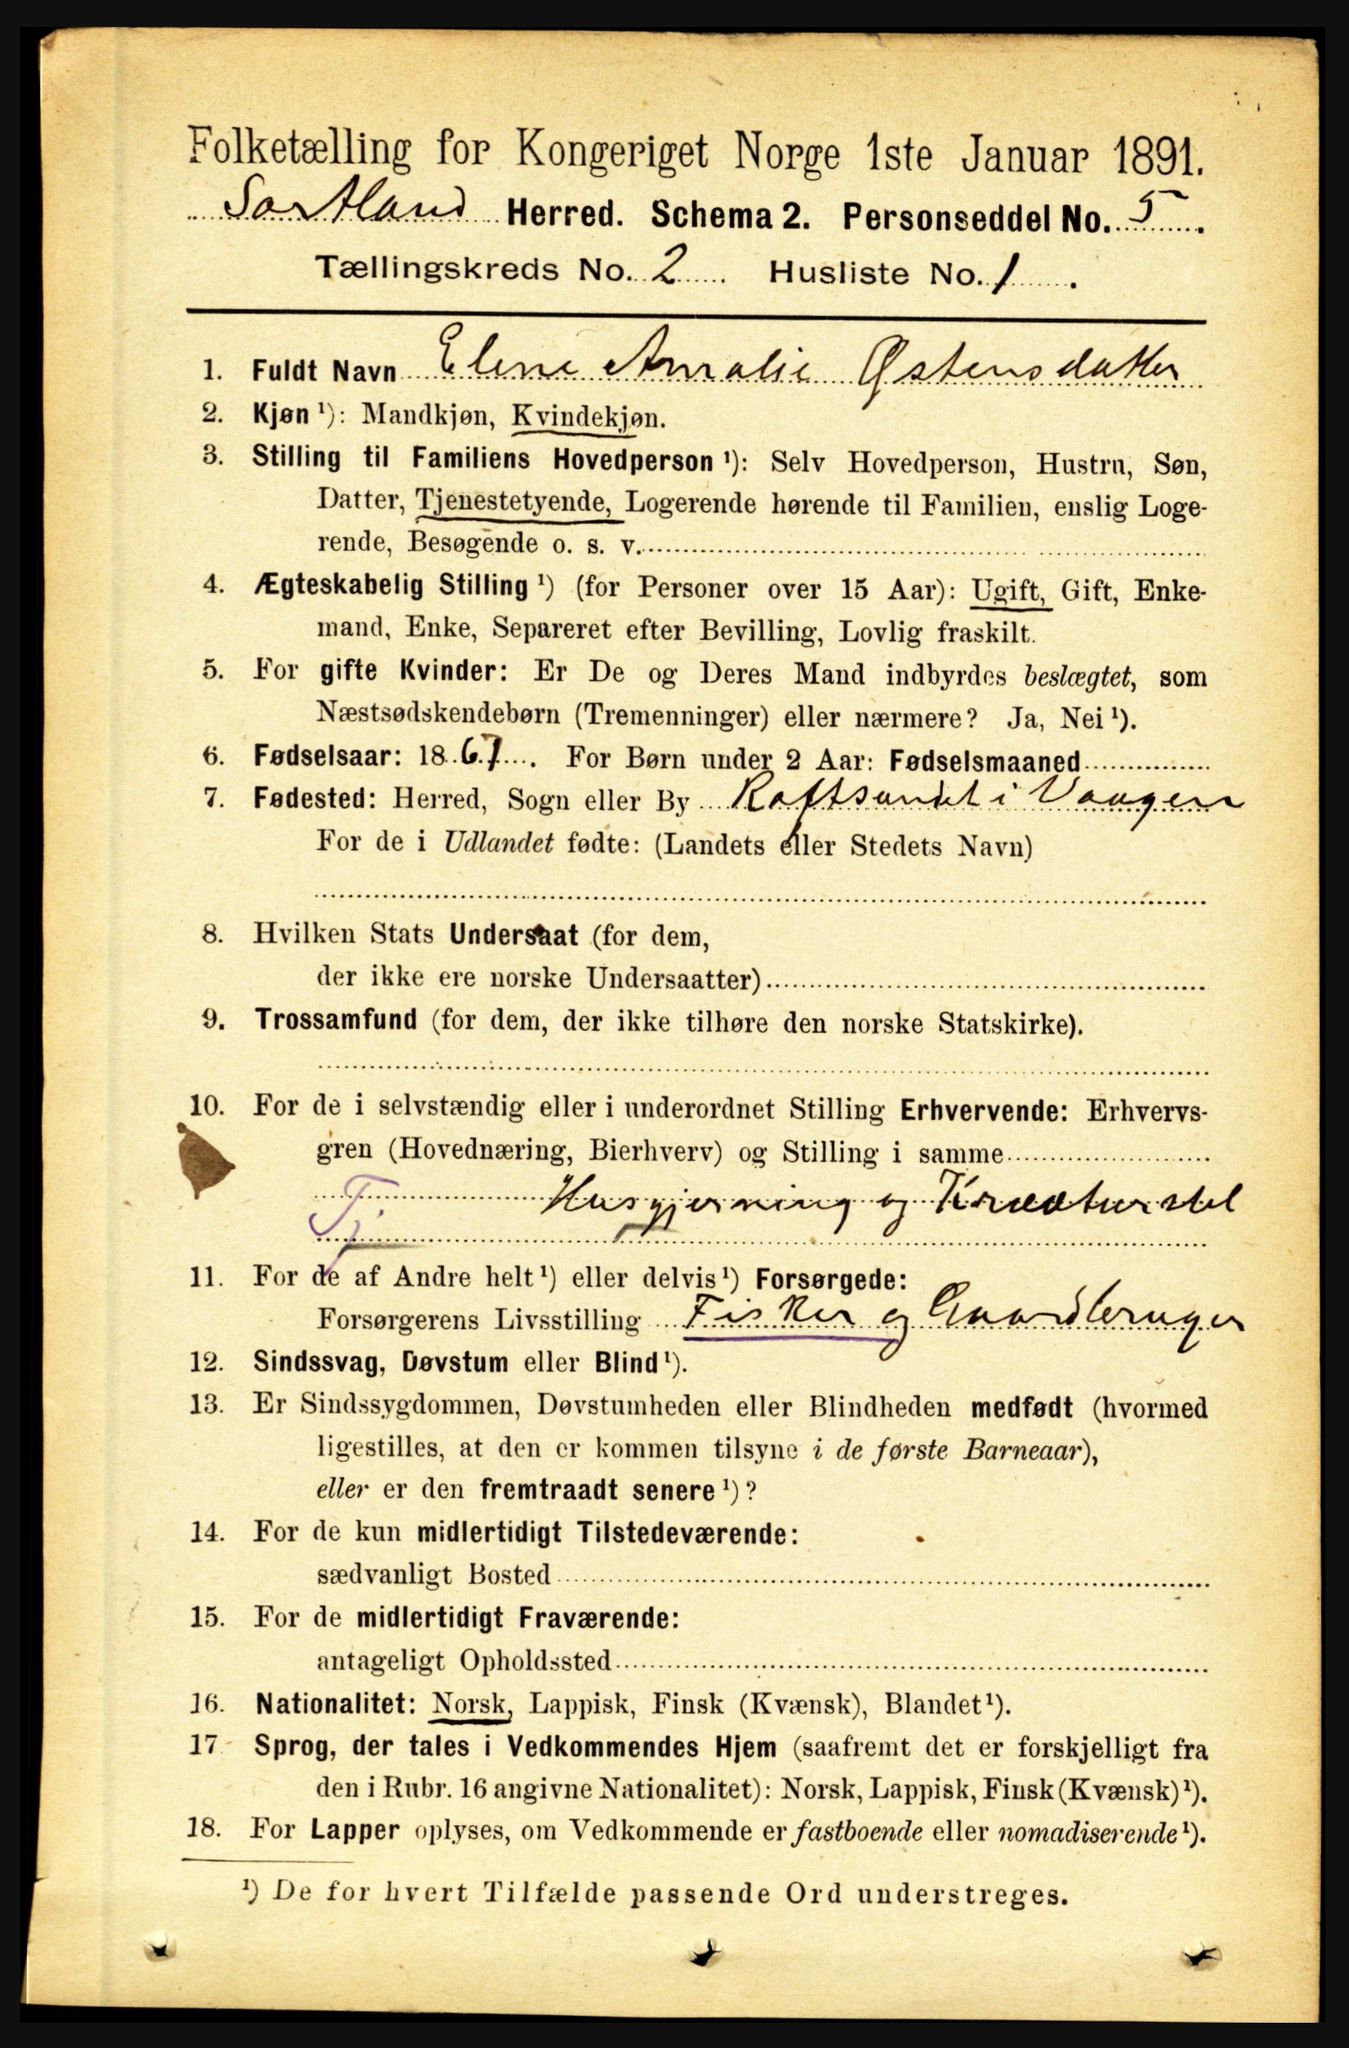 Folketælling for Kongeriget Norge 1ste Januar 1891.
Sortland Herred. Schema 2. Personseddel No. 5.
Tællingskreds No. 2 Husliste No. 1.
1. Fuldt Navn Elene Amalie Østensdatter
2. Kjøn ¹): Mandkjøn, Kvindekjøn.
3. Stilling til Familiens Hovedperson ¹): Selv Hovedperson, Hustru, Søn,
Datter, Tjenestetyende, Logerende hørende til Familien, enslig Loge-
rende, Besøgende o. s. v.
4. Ægteskabelig Stilling ¹) (for Personer over 15 Aar): Ugift, Gift, Enke-
mand, Enke, Separeret efter Bevilling, Lovlig fraskilt.
5. For gifte Kvinder: Er De og Deres Mand indbyrdes beslægtet, som
Næstsødskendebørn (Tremenninger) eller nærmere? Ja, Nei ¹).
6. Fødselsaar: 1867. For Børn under 2 Aar: Fødselsmaaned
7. Fødested: Herred, Sogn eller By Raftsundet i Vaagen
For de i Udlandet fødte: (Landets eller Stedets Navn)
8. Hvilken Stats Undersaat (for dem,
der ikke ere norske Undersaatter)
9. Trossamfund (for dem, der ikke tilhøre den norske Statskirke).
10. For de i selvstændig eller i underordnet Stilling Erhvervende: Erhvervs-
gren (Hovednæring, Bierhverv) og Stilling i samme
Husgjerning og Kreaturstel
Tj
11. For de af Andre helt ¹) eller delvis ¹) Forsørgede:
Forsørgerens Livsstilling Fisker og Gaardbruger
12. Sindssvag, Døvstum eller Blind ¹).
13. Er Sindssygdommen, Døvstumheden eller Blindheden medfødt (hvormed
ligestilles, at den er kommen tilsyne i de første Barneaar),
eller er den fremtraadt senere ¹)?
14. For de kun midlertidigt Tilstedeværende:
sædvanligt Bosted
15. For de midlertidigt Fraværende:
antageligt Opholdssted
16. Nationalitet: Norsk, Lappisk, Finsk (Kvænsk), Blandet ¹).
17 Sprog, der tales i Vedkommendes Hjem (saafremt det er forskjelligt fra
den i Rubr. 16 angivne Nationalitet): Norsk, Lappisk, Finsk (Kvænsk) ¹).
18. For Lapper oplyses, om Vedkommende er fastboende eller nomadiserende ¹).
¹) De for hvert Tilfælde passende Ord understreges.